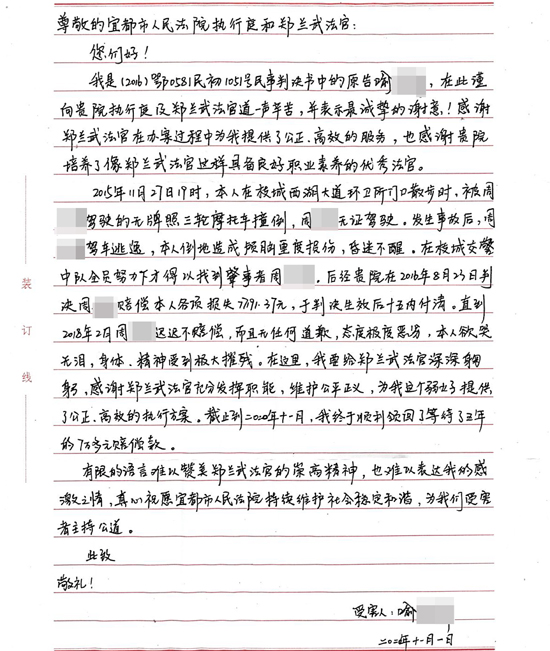 尊敬的宜都市人民法院执行庭和郑兰武法官：
您们好！
我是(2016)鄂0581民初1051号民事判决书中的原告喻，在此谨
向贵院执行庭及郑兰武法官道一声辛苦，并表示最诚挚的谢意！感谢
郑兰武法官在办案过程中为我提供了公正、高效的服务，也感谢贵院
培养了像郑兰武法官这样具备良好职业素养的优秀法官。
2015年11月27日17时，本人在枝城西湖大道环卫所门口散步时，被周
驾驶的无牌照三轮摩托车撞倒，周无证驾驶。发生事故后，周
驾车逃逸，本人倒地造成胸重度损伤，昏迷不醒。在枝城交警
中队全员努力下才得以找到肇事者周。后经贵院在2016年8月23日判
决周赔偿本人各项损失77171.37元，于判决生效后十五内付清。直到
2018年2月周迟迟不赔偿，而且无任何道歉，态度极度恶劣，本人欲哭
无泪，身体、精神受到极大摧残。在这里，我要给郑兰武法官深深鞠
躬，感谢郑兰武法官充分发挥职能，维护公平正义，为我这个弱女子提供
了公正、高效的执行方案。截止到二0二0年十一月，我终于顺利领回了等待了五年
的7万多元赔偿款。
有限的语言难以赞美郑兰武法官的崇高精神，也难以表达我的感
激之情，真心祝愿宜都市人民法院持续维护社会稳定和谐，为我们受害
者主持公道。
此致
敬礼！
受害人：喻
二0二0年十一月一日
装
订
线